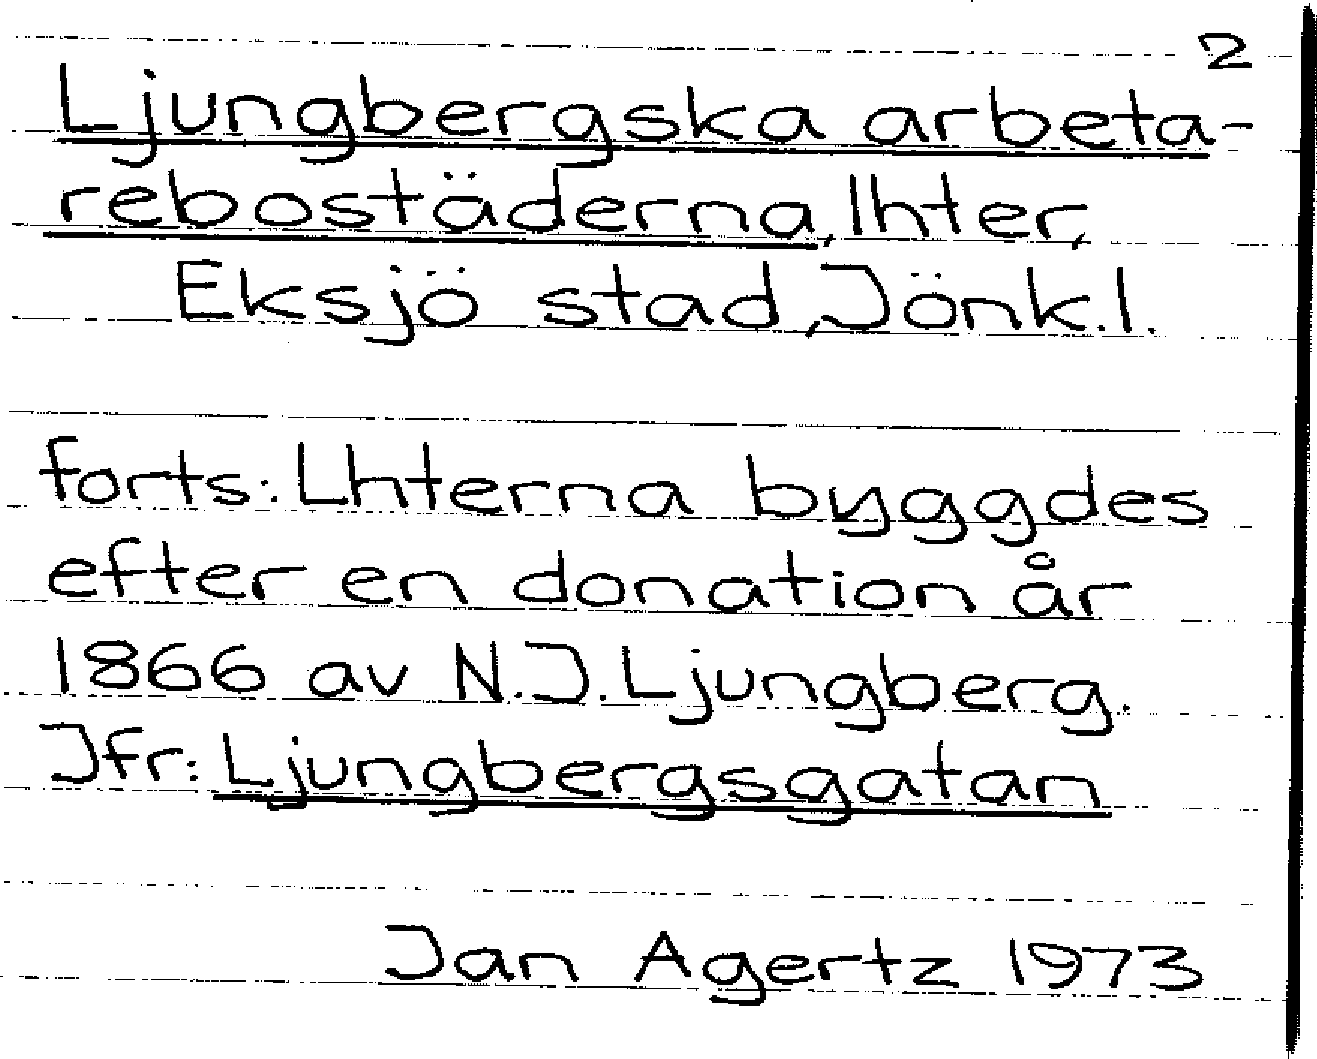 2
Ljungbergska arbeta-
rebostäderna, lhter,
Eksjö stad, Jönk.l.
forts: Lhterna byggdes
efter en donation år
1866 av N.J. Ljungberg.
Jfr: Ljungbergsgatan
Jan Agertz 1973